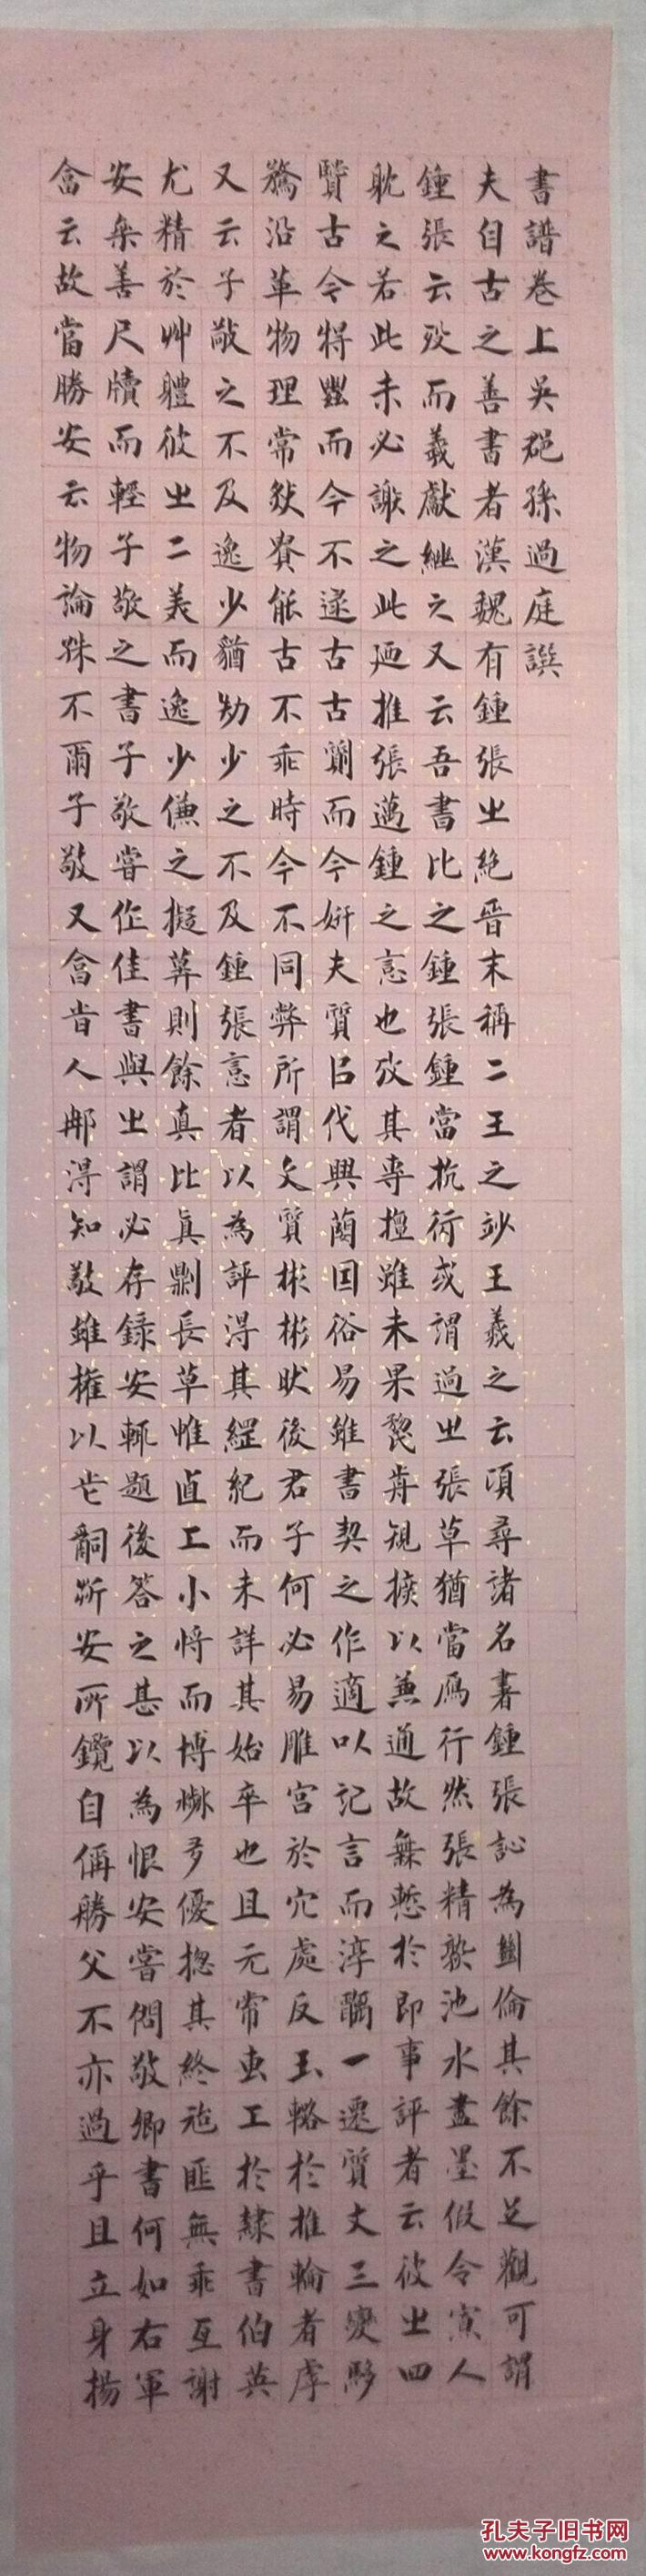 書譜卷上吳郡孫過庭譔
夫自古之善書者漢魏有鍾張之絕晉末稱二王之妙王羲之云頃尋諸名書鍾張信為絕倫其餘不足觀可謂
鍾張云歿而羲獻繼之又云吾書比之鍾張鍾當抗行或謂過之張草猶當鴈行然張精熟池水盡墨假令寡人
耽之若此未必謝之此廼推張邁鍾之意也攷其專擅雖未果於前規摭以兼通故無慙於即事評者云彼之四
賢古今特絕而今不逮古古質而今妍夫質以代興妍因俗易雖書契之作適以記言而淳醨一遷質文三變馳
騖沿革物理常然貴能古不乖時今不同弊所謂文質彬彬然後君子何必易雕宮於穴處反玉輅於椎輪者虖
又云子敬之不及逸少猶逸少之不及鍾張意者以為評得其綱紀而未詳其始卒也且元常專工於隸書伯英
尤精於艸體彼之二美而逸少兼之擬草則餘真比真則長草雖專工小劣而博涉多優揔其終始匪無乖互謝
安素善尺牘而輕子敬之書子敬嘗作佳書與之謂必存錄安輒題後答之甚以為恨安嘗問敬卿書何如右軍
答云故當勝安云物論殊不爾子敬又答時人那得知敬雖權以此辭折安所鑒自稱勝父不亦過乎且立身揚
孔夫子旧书网
www.kongfz.com